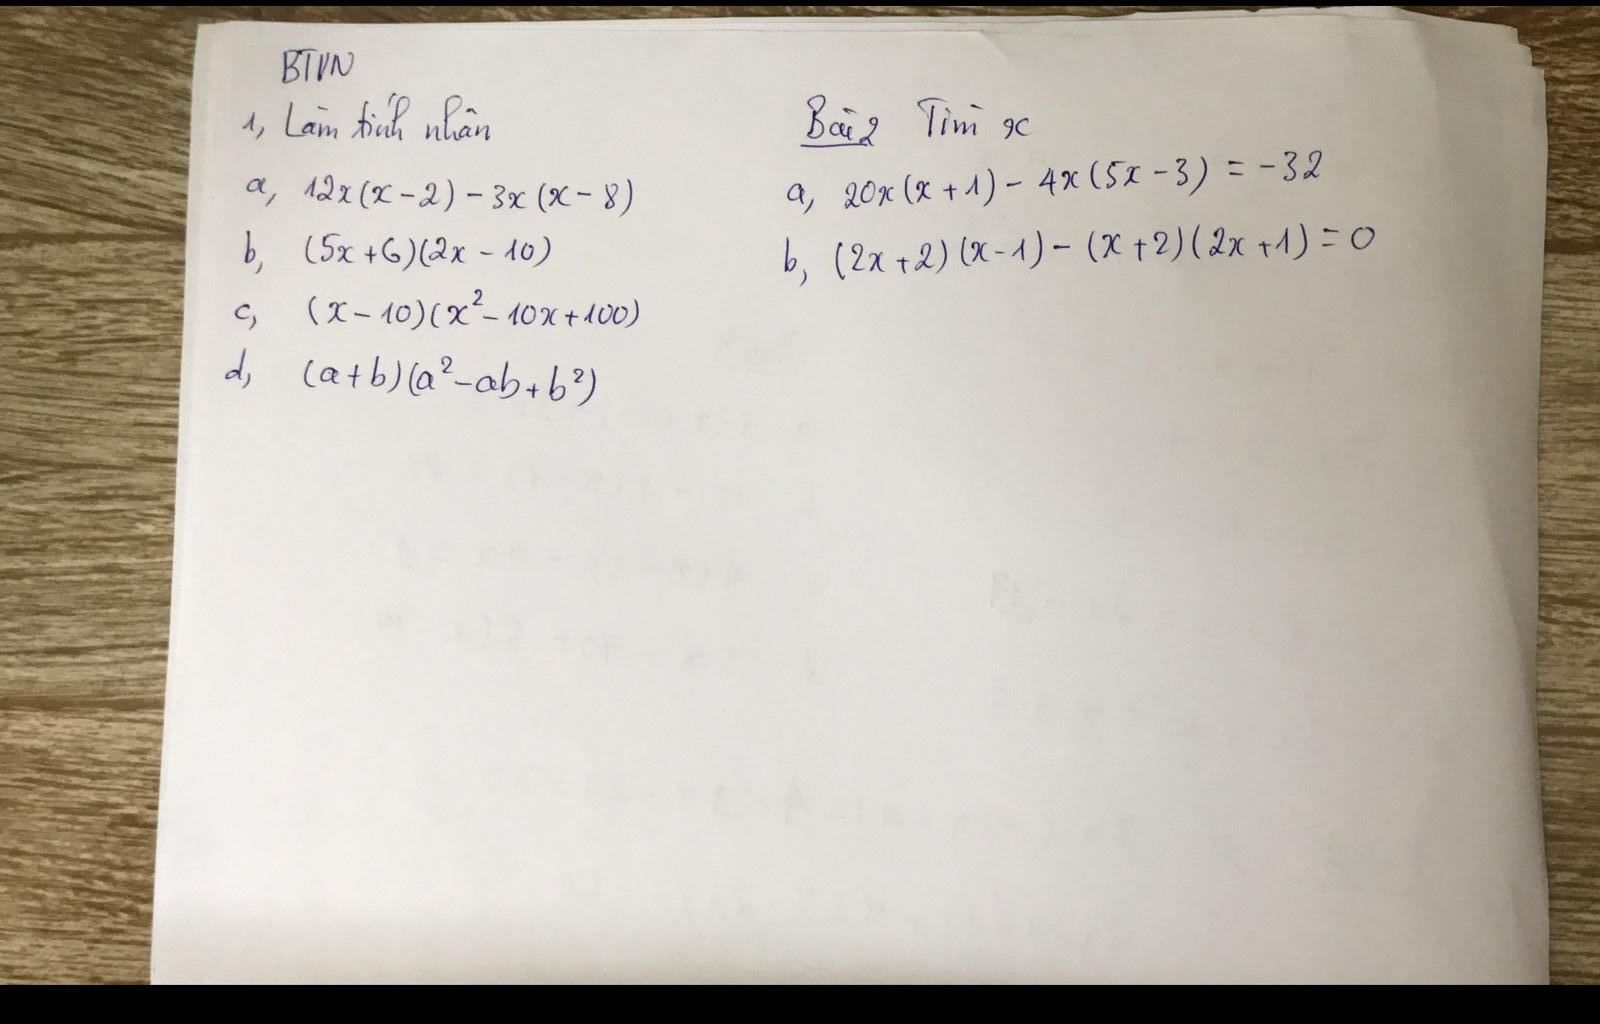 BTVN
1, Làm tính nhân
a, 12x(x-2)-3x(x-8)
b, (5x+6)(2x-10)
c, (x-10)(x²-10x+100)
d, (a+b)(a²-ab+b²)
Bài 2 Tìm x
a, 20x(x+1)-4x(5x-3)=-32
b, (2x+2)(x-1)-(x+2)(2x+1)=0